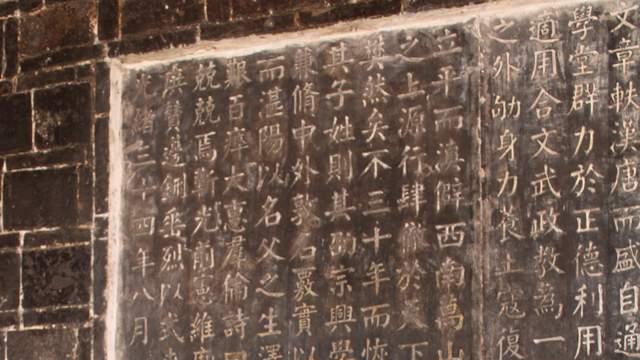 文章軼漢唐而盛自通
學堂群力於正德利用
適用合文武政教為一
之外劬身力養土寇復
立平而滇僻西南萬山
之上源行肆於天下
然矣不三十年而恢
其子姓則其宗興學
兼脩中外敦名覈實以
而湛陽以名父之生澤
艱百大憲羣倫詩曰
兢兢焉光前惠維
贊邊垂烈以式
光緒三十四年八月